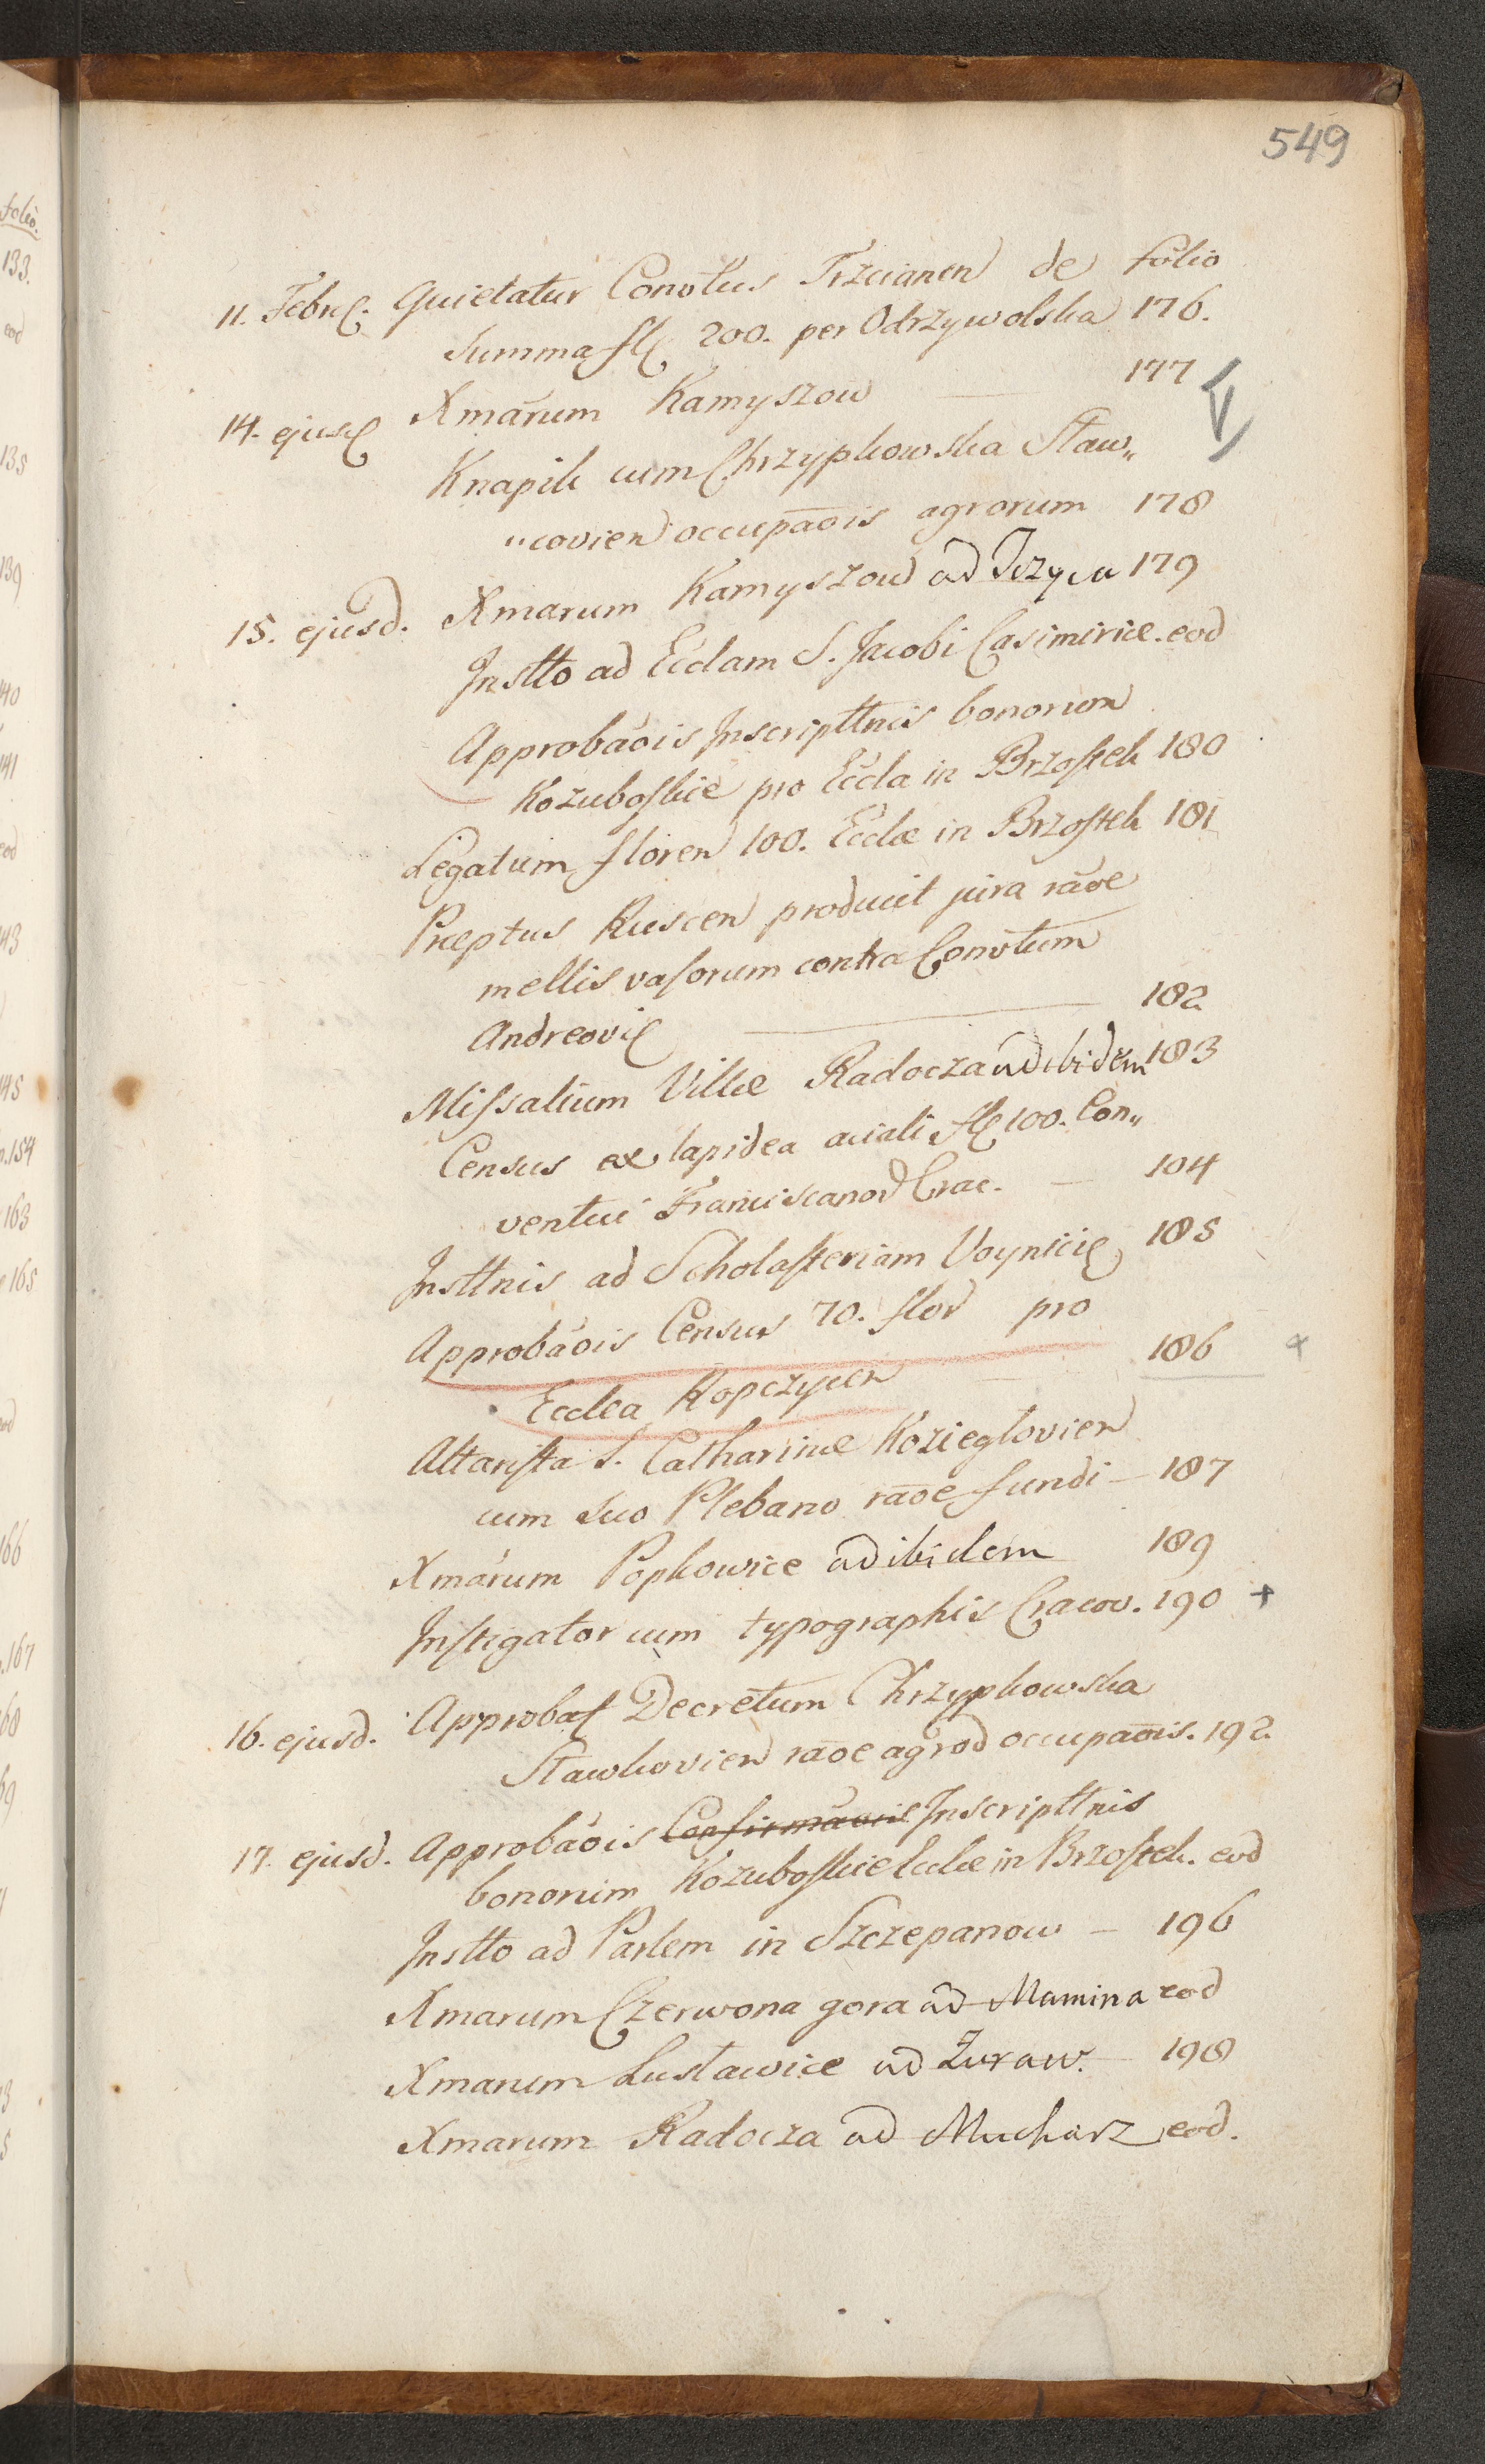 549
folio
11. Febr. Quietatur Convtus Trzcianen de
summa fl. 200. per Odrzywolska 176.
14. ejusd Xmarum Kamyszow — 177
Knapik cum Chrzypkowska Slaw„
„covien occupaois agrorum 178
15. ejusd. Xmarum Kamyszow ad Irzyca 179
Instto ad Ecclam S. Jacobi Casimiriæ. eod
Approbaois Inscripttnis bonorum
Kozuboskie pro Eccla in Brzostek 180
Legatum floren 100. Ecclæ in Brzostek 181
Præptus Ruscen producit jura raoe
mellis vasorum contra Convtum
Andreovi — 182
Missalium Villæ Radocza ad ibidem 183
Census ex lapidea aciali fl. 100. Con„
ventui Franciscanor Crac. — 184
Insttnis ad Scholasteriam Voynici 185
Approbaois Census 70. flor pro
Ecclea Kopczycen — 186
Altarista S. Catharinæ Kozieglovien
cum suo Plebano raoe fundi — 187
Xmarum Popkowice ad ibidem 189
Instigator cum typographis Cracov. 190 +
16. ejusd. Approbat Decretum Chrzypkowska
Slawkovien raoe agror occupaois. 192.
17. ejusd. Approbaois Confirmaois Inscripttnis
bonorum Kozuboskie Ecclæ in Brzostek. eod
Instto ad Parlem in Szczepanow — 196
Xmarum Czerwona gora ad Mamina eod
Xmarum Lustawice ad Zuraw. — 198
Xmarum Radocza ad Mucharz eod.